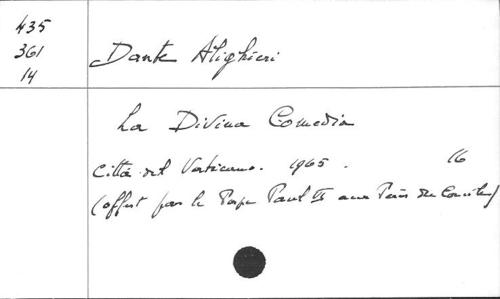 435
361
14
Dante Alighieri
La Divina Comedia
Città del Vaticano. 1965. 16
(offert par le Pape Paul VI aux Pères du Concile)